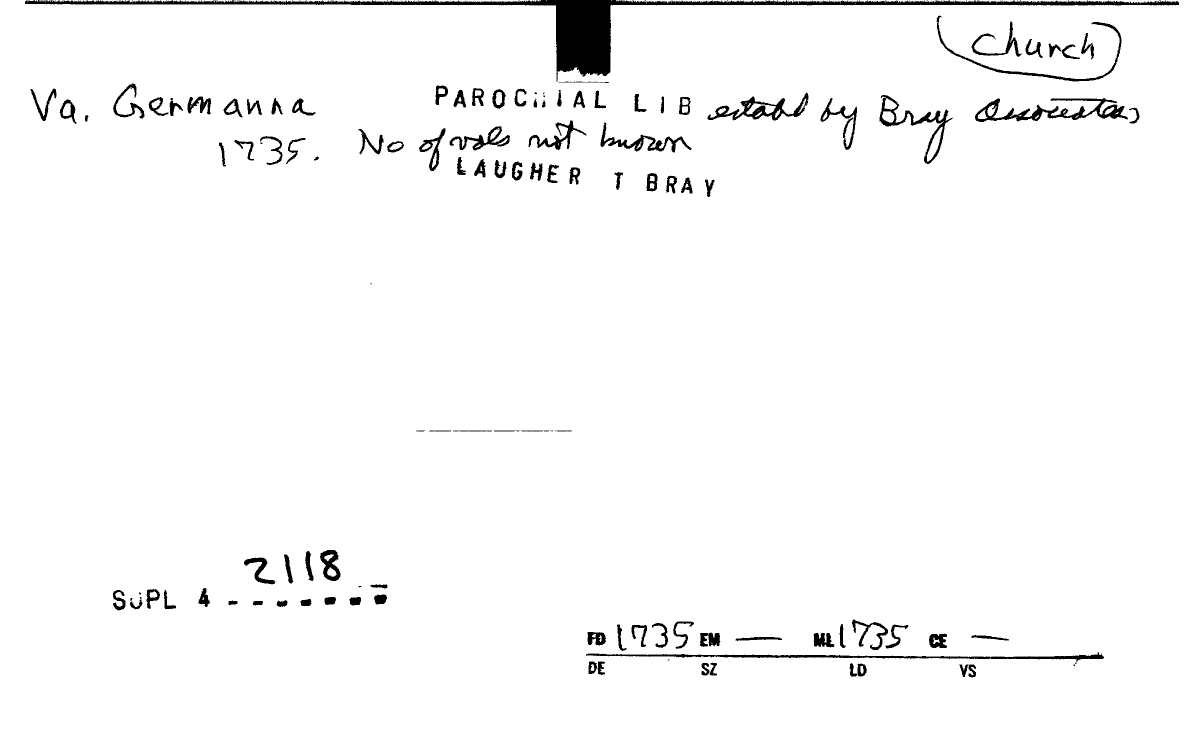 Church
Va. Germanna PAROCHIAL LIB establ by Bray Associates
1735. No of vols not known
LAUGHER T BRAY
2118
SUPL 4 - - - - - - -
FD 1735 EM — ML 1735 CE —
DE SZ LD VS